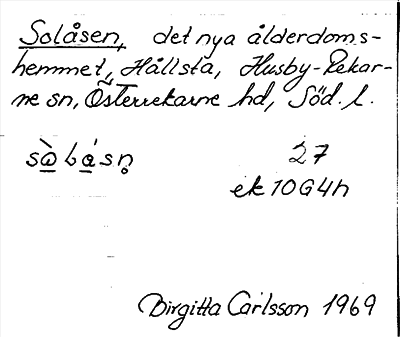 Solåsen, det nya ålderdoms-
hemmet, Hållsta, Husby-Rekar-
ne sn, Österrekarne hd, Söd. l.
sò̲ bá̲sn̥ 27
ek 10G4h
Birgitta Carlsson 1969